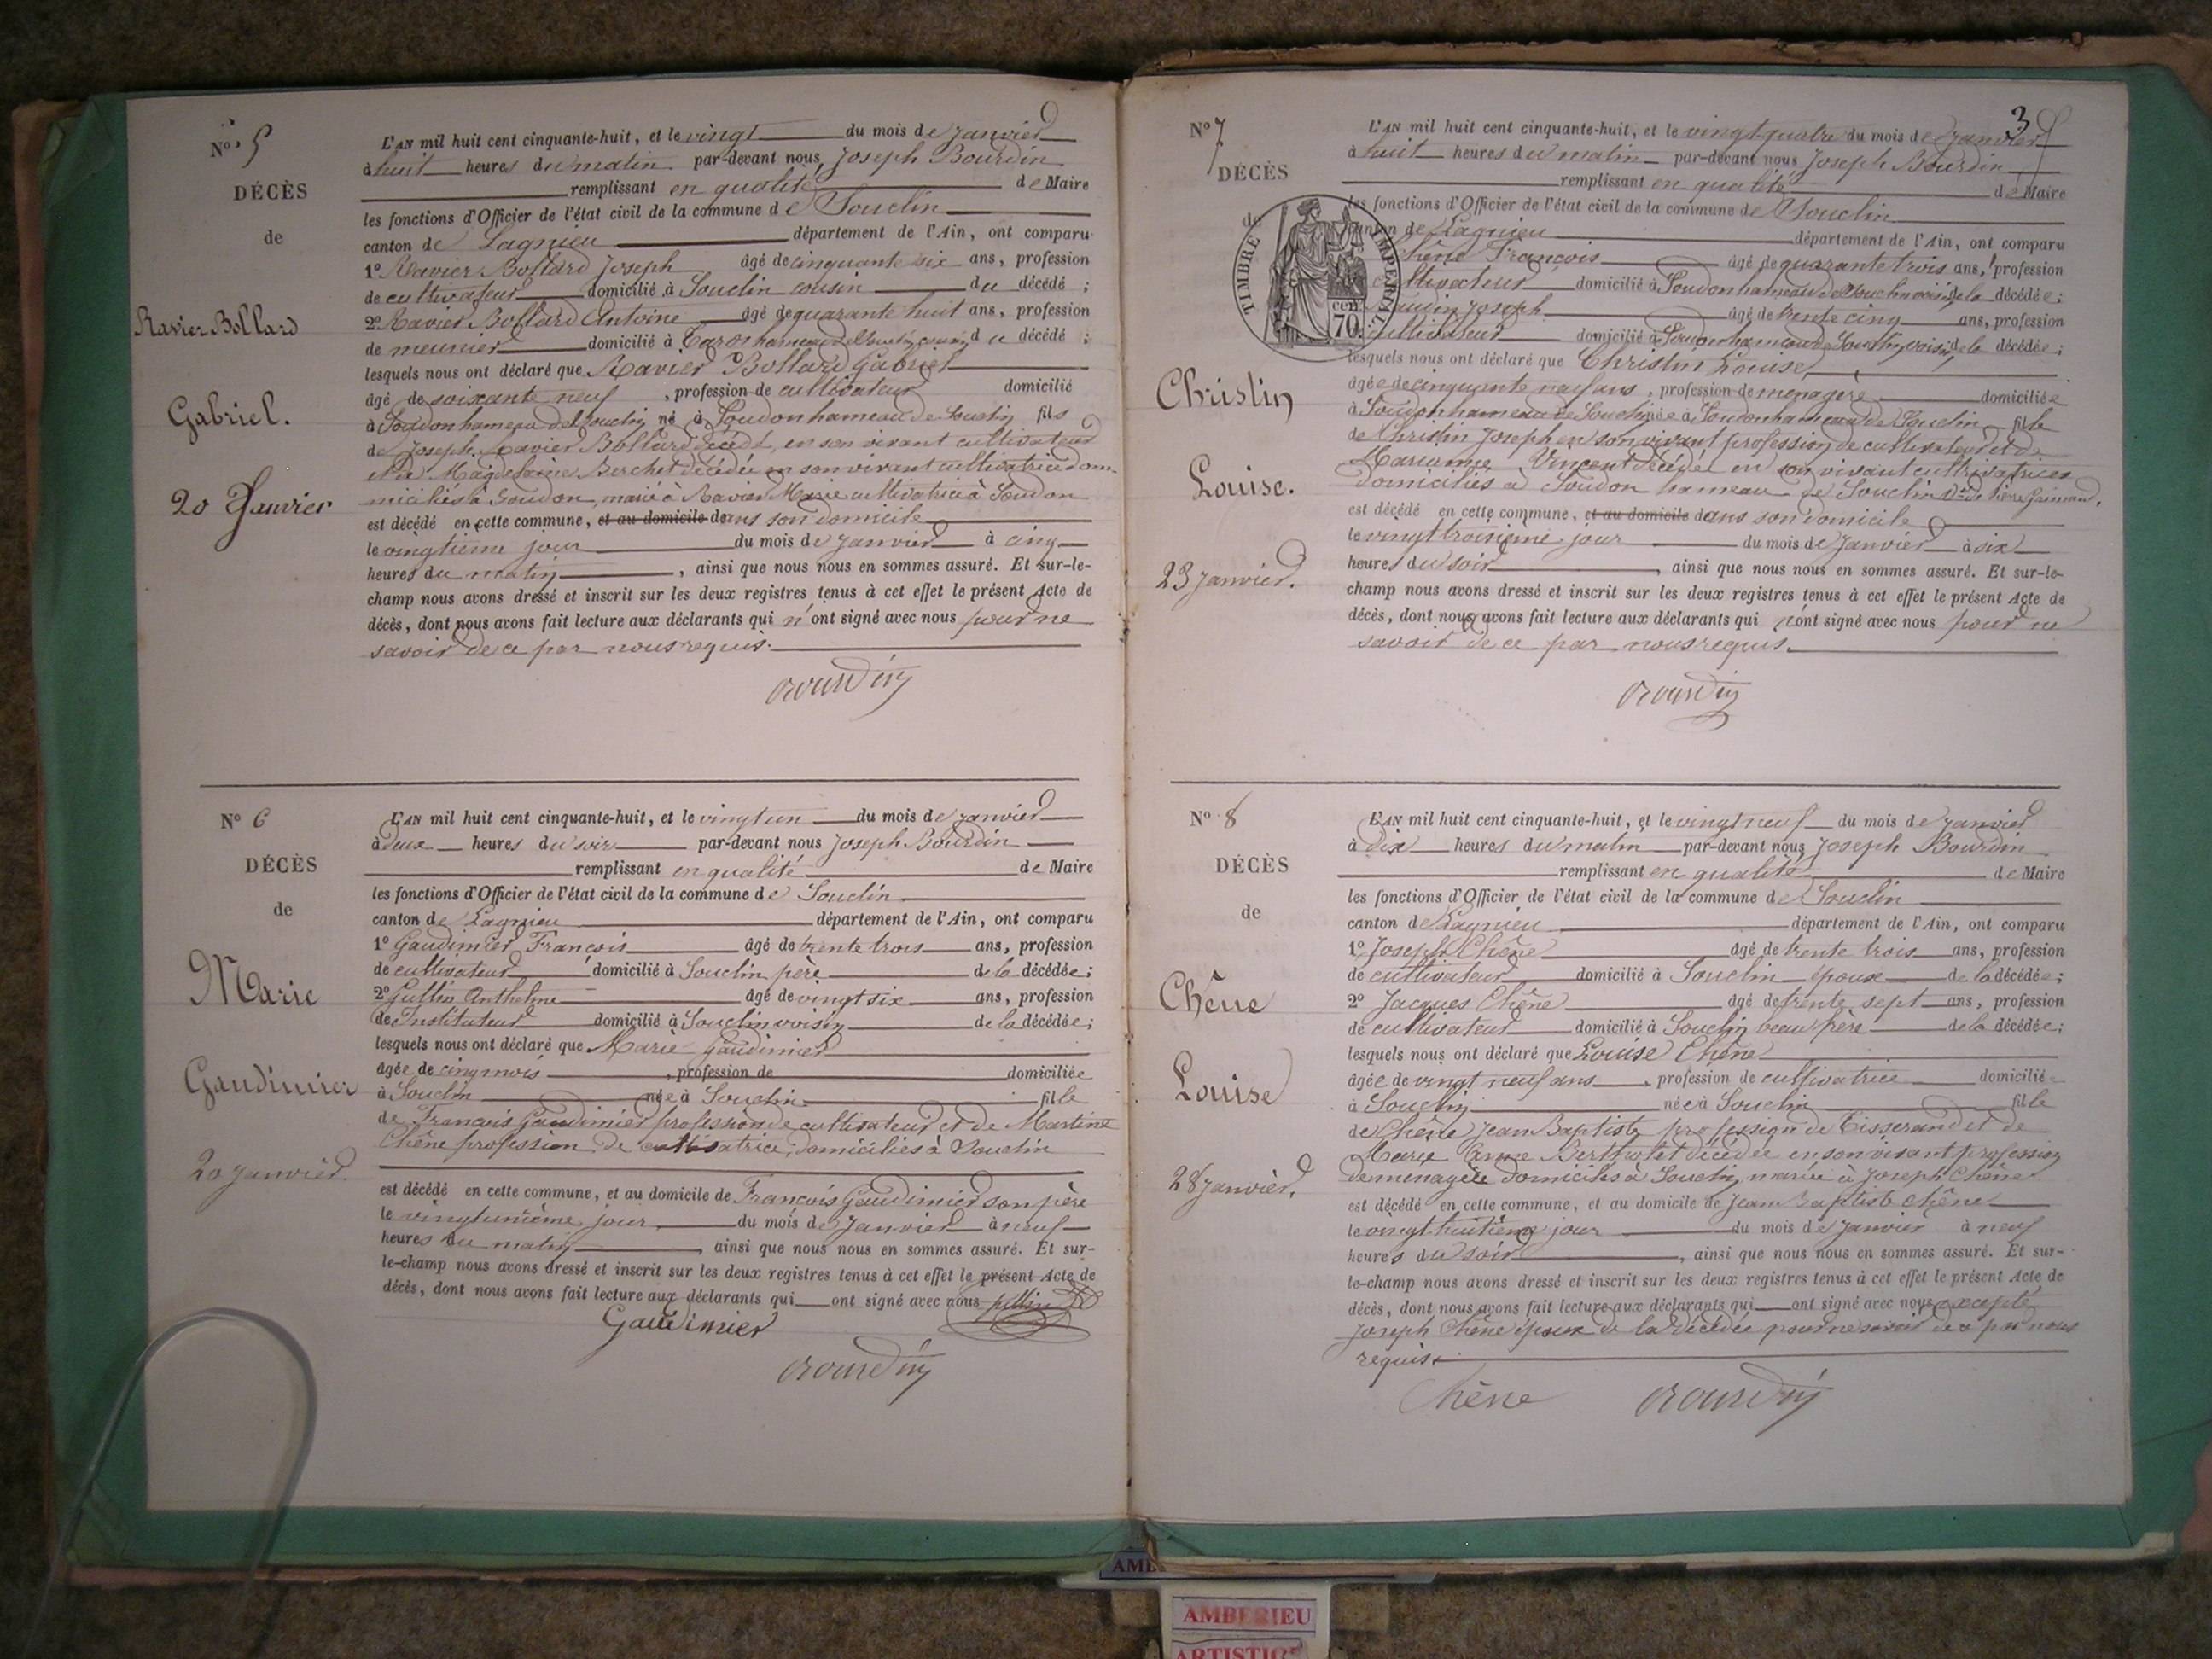 N° 5
DÉCÈS
de
Ravier Bollard
Gabriel.
20 Janvier
L'AN mil huit cent cinquante-huit, et le vingt du mois de Janvier
à huit heures du matin par-devant nous Joseph Bourdin
remplissant en qualité de Maire
les fonctions d'Officier de l'état civil de la commune de Souclin
canton de Lagnieu département de l'Ain, ont comparu
1° Ravier Bollard Joseph âgé de cinquante six ans, profession
de cultivateur domicilié à Souclin cousin du décédé;
2° Ravier Bollard Antoine âgé de quarante huit ans, profession
de meunier domicilié à hameau de Souclin cousin du décédé;
lesquels nous ont déclaré que Ravier Bollard Gabriel
âgé de soixante neuf, profession de cultivateur domicilié
à Soudon hameau de Souclin né à Soudon hameau de Souclin fils
de Joseph Ravier Bollard décédé, en son vivant cultivateur
et de Magdelaine Berchet décédée en son vivant cultivatrice dom-
miciliés à Soudon, marié à Ravier Marie cultivatrice à Soudon
est décédé en cette commune, et au domicile dans son domicile
le vingtieme jour du mois de Janvier à cinq
heures du matin, ainsi que nous nous en sommes assuré. Et sur-le-
champ nous avons dressé et inscrit sur les deux registres tenus à cet effet le présent Acte de
décès, dont nous avons fait lecture aux déclarants qui n'ont signé avec nous pour ne
savoir de ce par nous requis.
Bourdin
N° 6
DÉCÈS
de
Marie
Gaudimier
20 janvier.
L'AN mil huit cent cinquante-huit, et le vingt un du mois de Janvier
à deux heures du soir par-devant nous Joseph Bourdin
remplissant en qualité de Maire
les fonctions d'Officier de l'état civil de la commune de Souclin
canton de Lagnieu département de l'Ain, ont comparu
1° Gaudimier François âgé de trente trois ans, profession
de cultivateur domicilié à Souclin père de la décédée;
2° Gullin Anthelme âgé de vingt six ans, profession
de Instituteur domicilié à Souclin voisin de la décédée;
lesquels nous ont déclaré que Marie Gaudimier
âgée de cinq mois, profession de domiciliée
à Souclin née à Souclin fille
de François Gaudimier profession de cultivateur et de Martine
Chêne profession de cultivatrice, domiciliés à Souclin
est décédé en cette commune, et au domicile de François Gaudimier son père
le vingtunième jour du mois de Janvier à neuf
heures du matin, ainsi que nous nous en sommes assuré. Et sur-
le-champ nous avons dressé et inscrit sur les deux registres tenus à cet effet le présent Acte de
décès, dont nous avons fait lecture aux déclarants qui ont signé avec nous
Gaudimier
Bourdin
3
N° 7
DÉCÈS
de
TIMBRE IMPÉRIAL
70 CEN.
Christin
Louise.
23 janvier.
L'AN mil huit cent cinquante-huit, et le vingt-quatre du mois de Janvier
à huit heures du matin par-devant nous Joseph Bourdin
remplissant en qualité de Maire
les fonctions d'Officier de l'état civil de la commune de Souclin
canton de Lagnieu département de l'Ain, ont comparu
Chêne François âgé de quarante trois ans, profession
cultivateur domicilié à Soudon hameau de Souclin voisin de la décédée;
Joseph âgé de trente cinq ans, profession
cultivateur domicilié à Soudon hameau de Souclin, voisin de la décédée;
lesquels nous ont déclaré que Christin Louise,
âgée de cinquante neuf ans, profession de menagère domiciliée
à Soudon hameau de Souclin née à Soudon hameau de Souclin fille
de Christin Joseph en son vivant profession de cultivateur et de
Marianne Vincent décédée en son vivant cultivatrice
domiciliés à Soudon hameau de Souclin
est décédé en cette commune, et au domicile dans son domicile
le vingt troisième jour du mois de Janvier à six
heures du soir, ainsi que nous nous en sommes assuré. Et sur-le-
champ nous avons dressé et inscrit sur les deux registres tenus à cet effet le présent Acte de
décès, dont nous avons fait lecture aux déclarants qui n'ont signé avec nous pour ne
savoir de ce par nous requis.
Bourdin
N° 8
DÉCÈS
de
Chêne
Louise
28 janvier.
L'AN mil huit cent cinquante-huit, et le vingt neuf du mois de Janvier
à dix heures du matin par-devant nous Joseph Bourdin
remplissant en qualité de Maire
les fonctions d'Officier de l'état civil de la commune de Souclin
canton de Lagnieu département de l'Ain, ont comparu
1° Joseph Chêne âgé de trente trois ans, profession
de cultivateur domicilié à Souclin époux de la décédée;
2° Jacques Chêne âgé de trente sept ans, profession
de cultivateur domicilié à Souclin beau père de la décédée;
lesquels nous ont déclaré que Louise Chêne
âgée de vingt neuf ans, profession de cultivatrice domiciliée
à Souclin née à Souclin fille
de Chêne Jean Baptiste profession de Tisserand et de
Marie Anne Berthotet décédée en son vivant profession
de menagère domiciliés à Souclin, mariée à Joseph Chêne
est décédé en cette commune, et au domicile de Jean Baptiste Chêne
le vingt huitième jour du mois de Janvier à neuf
heures du soir, ainsi que nous nous en sommes assuré. Et sur-
le-champ nous avons dressé et inscrit sur les deux registres tenus à cet effet le présent Acte de
décès, dont nous avons fait lecture aux déclarants qui ont signé avec nous excepté
Joseph Chêne époux de la décédée pour ne savoir de ce par nous
requis.
Chêne Bourdin
AMBERIEU
ARTISTIQUE